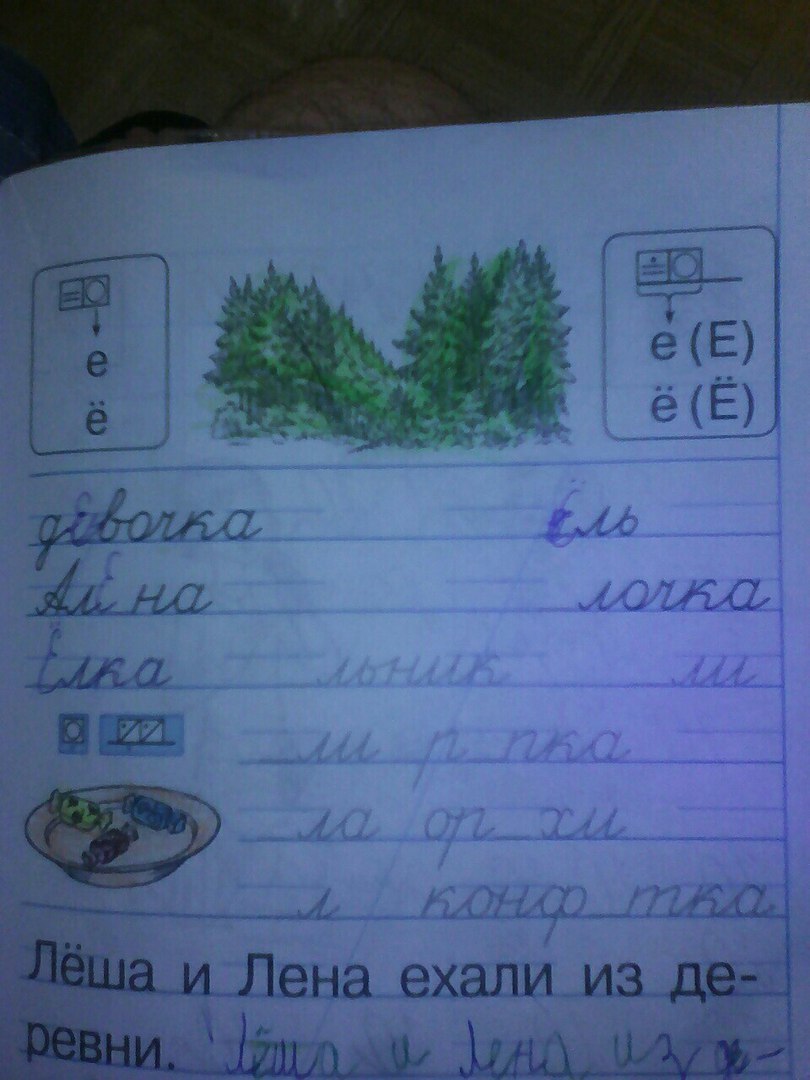 е е (Е)
ё ё (Ё)
девочка Ёль
Алёна лочка
Ёлка льник ли
ли р пка
ла ор хи
л конф тка
Лёша и Лена ехали из де-
ревни. Лёша и Лена из